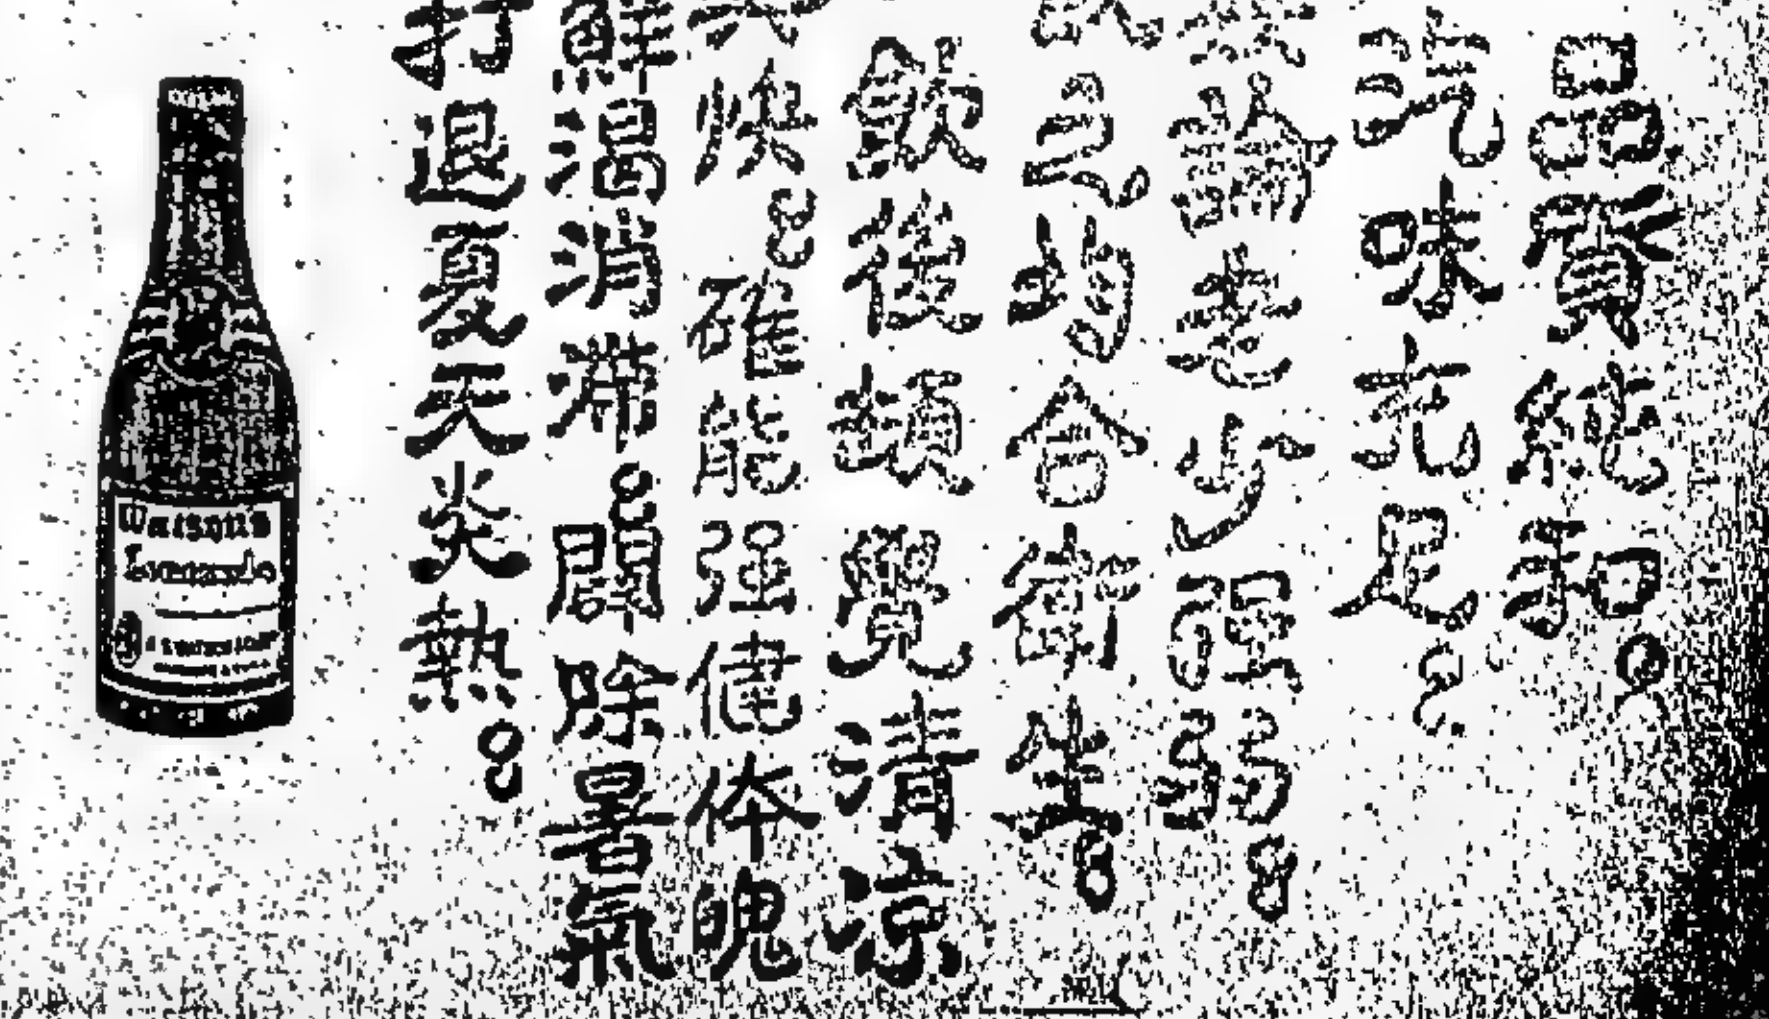 品質純和。
汽味充足。
論老少强弱。
之均合衛生。
飲後頓覺清凉
快。確能强健体魄
解渴消滯。闢除暑氣
打退夏天炎熱。
Watson's
Lemonade